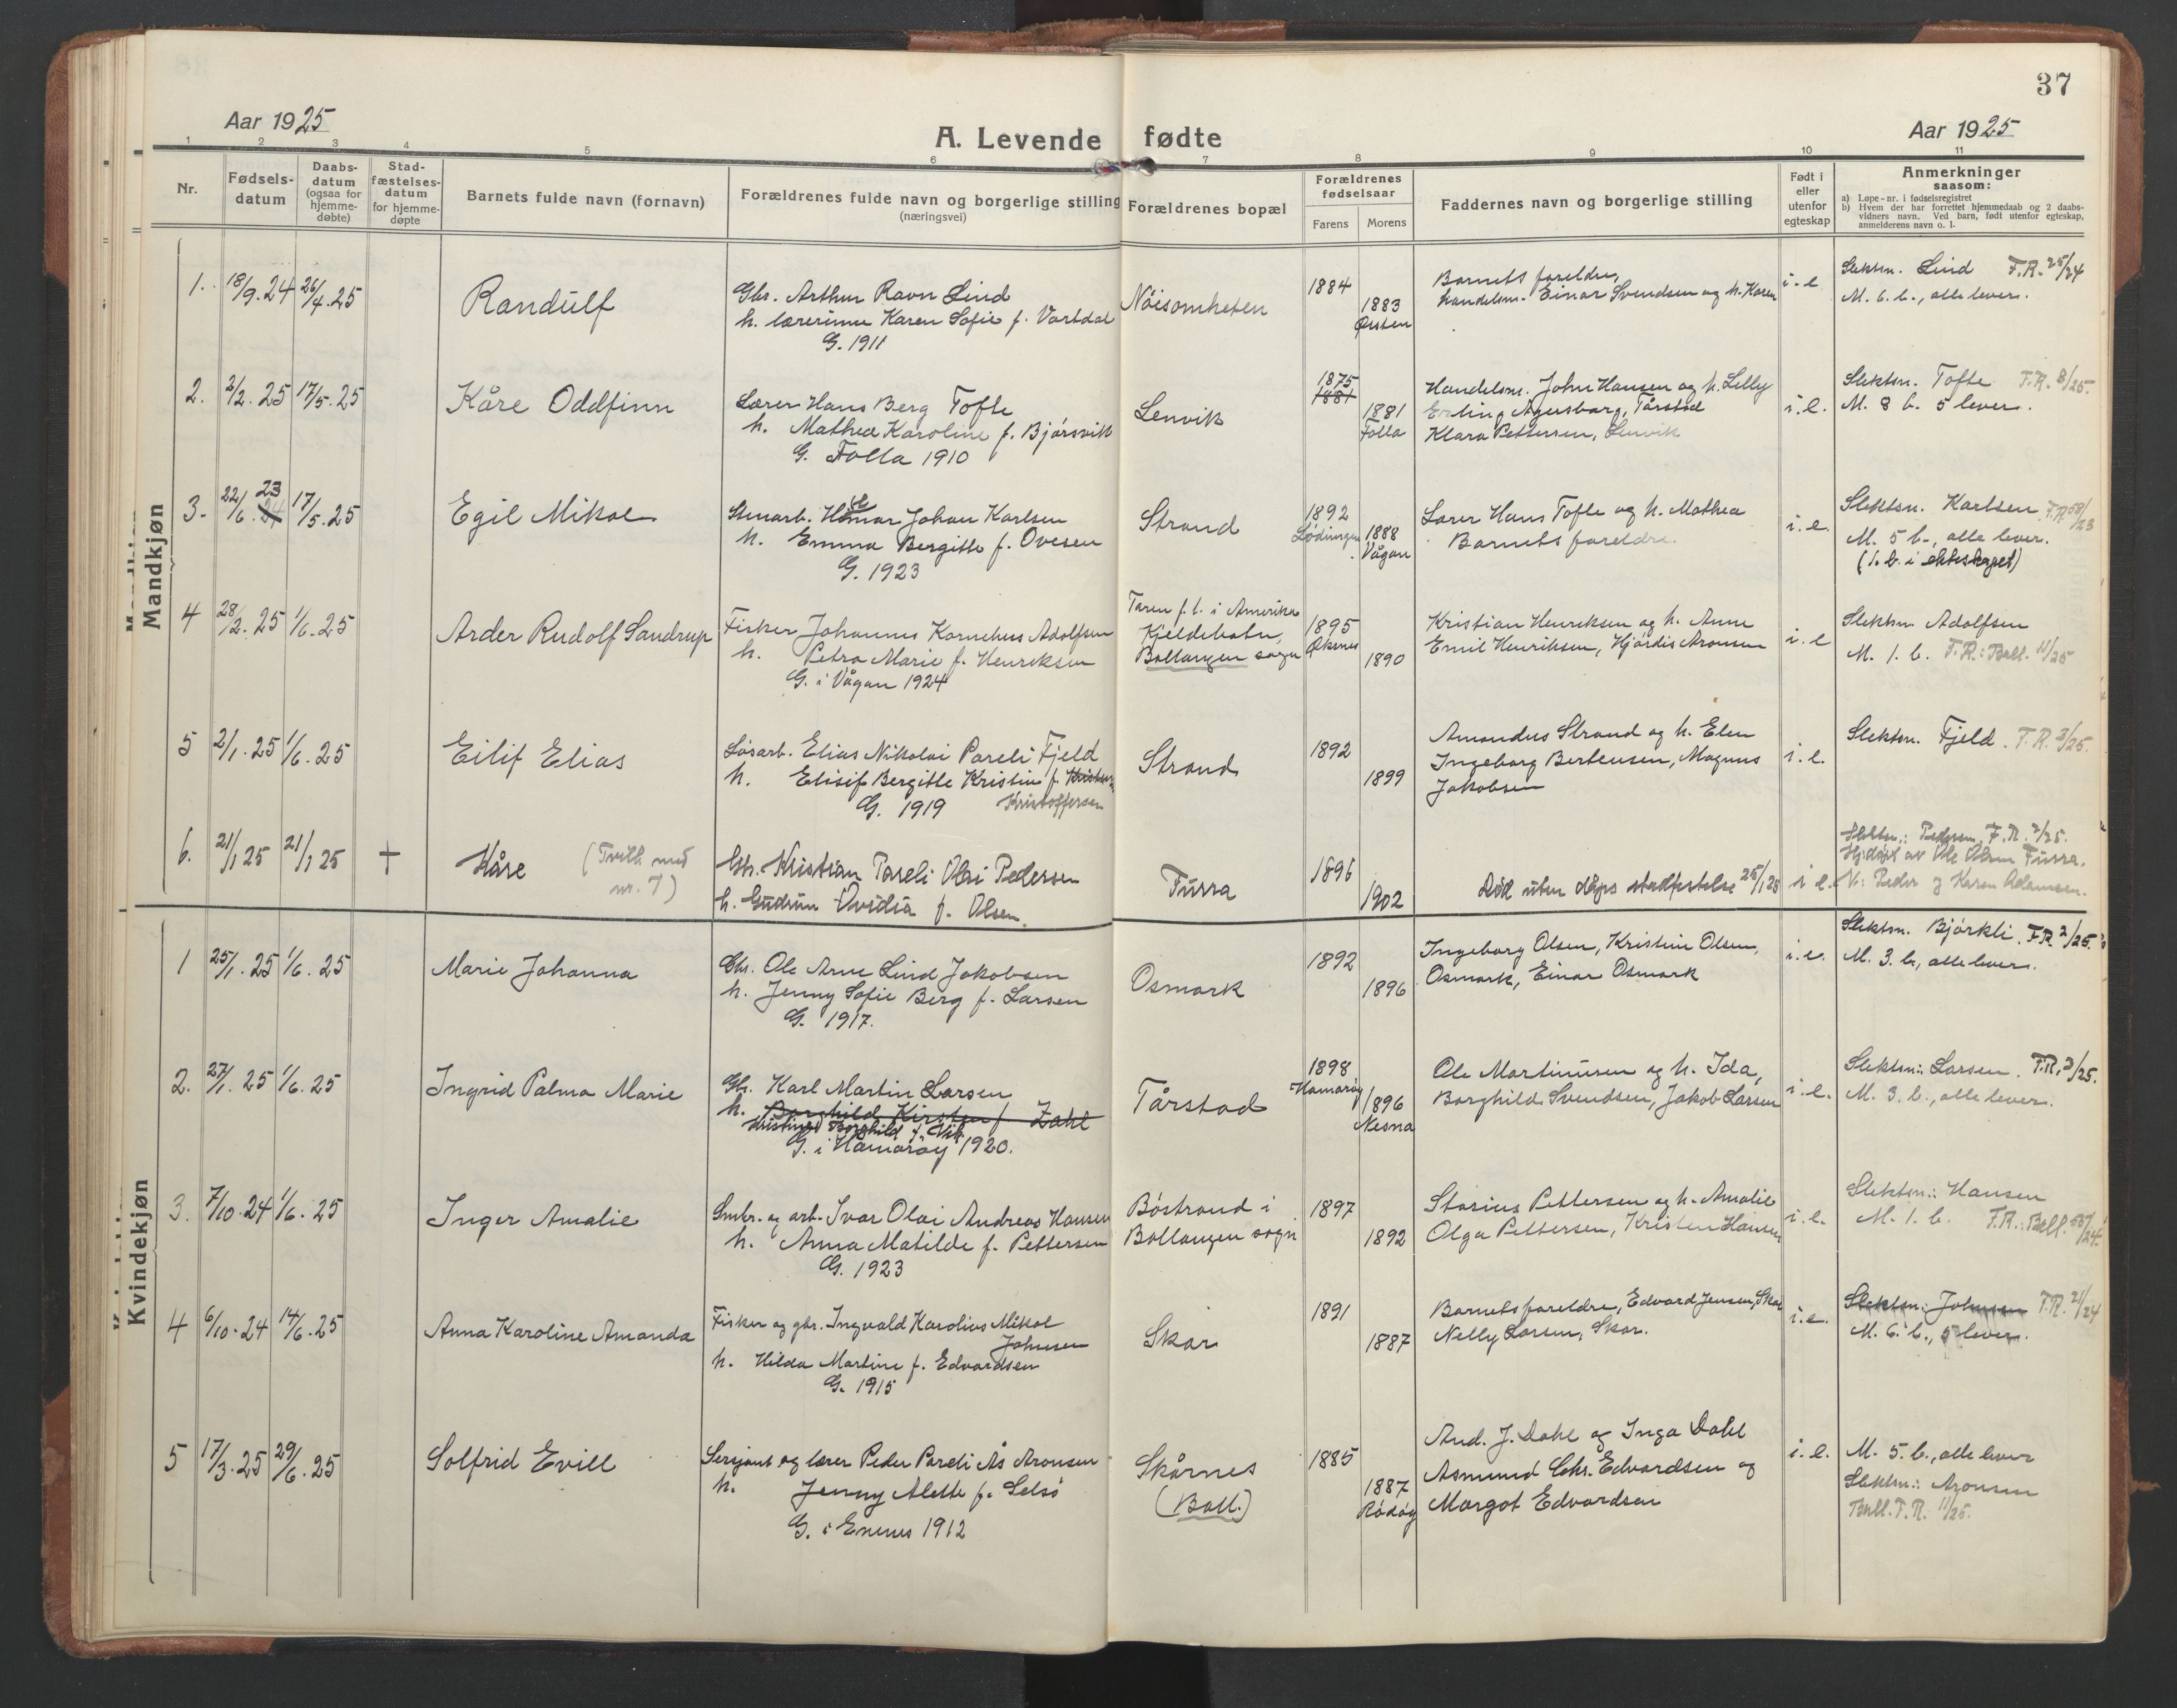 37
Aar 1925
A. Levende fødte
Aar 1925
1 2 3 4 5 6 7 8 9 10 11
Nr.
Fødsels-
datum
Daabs-
datum
(ogsaa for
hjemme-
døbte)
Stad-
fæstelses-
datum
for hjemme-
døpte
Barnets fulde navn (fornavn)
Forældrenes fulde navn og borgerlige stilling
(næringsvei)
Forældrenes bopæl
Forældrenes
fødselsaar
Farens
Morens
Faddernes navn og borgerlige stilling
Født i
eller
utenfor
egteskap
Anmerkninger
saasom:
a) Løpe-nr. i fødselsregistret
b) Hvem der har forrettet hjemmedaab og 2 daabs-
vidners navn. Ved barn, født utenfor egteskap,
anmelderens navn o. l.
Mandkjøn
1. 18/9.24 26/4.25
Randulf
Gbr. Arthur Ravn Lind
h. lærerinne Karen Sofie f. Vartdal
G. 1911
Nöisomheten
1884
1883
Ørsten
Barnets foreldre,
handelsm. Einar Svendsen og h. Karen
i.e
Slektsn. Lind F.R. 25/24
M. 6. b., alle lever.
2. 2/2.25 17/5.25
Kåre Oddfinn
Lærer Hans Berg Tofte
h. Mathea Karoline f. Bjørsvik
G. Folla 1910
Lenvik
1875
1881
1881
Folla
Handelsm. John Hansen og h. Lelly
Erling Agersborg, Tårstad
Klara Pettersen, Lenvik
i.e.
Slektsn. Tofte F.R. 8/25.
M. 8 b. 5 lever.
3. 22/6.23 24 17/5.25
Egil Mikal
Stenarb. Hilmar Johan Karlsen
h. Emma Bergitte f. Ovesen
G. 1923
Strand
1892
Lødingen
1888
Vågan
Lærer Hans Tofte og h. Mathea
Barnets foreldre.
i.e.
Slektsn. Karlsen F.R. 58/23
M. 5 b., alle lever.
(1. b. i ekteskapet)
4 28/2.25 1/6.25
Arder Rudolf Sandrup
Fisker Johannes Kornelius Adolfsen
h. Petra Marie f. Henriksen
G. i Vågan 1924
Faren f.t. i Amerika
Kjeldebotn,
Ballangen sogn
1895
Øksnes
1890
Kristian Henriksen og h. Anne
Emil Henriksen, Hjördis Aronsen
i.e
Slektsn Adolfsen
M. 1. b. F.R.: Ball. 11/25
5 2/1.25 1/6.25
Eilif Elias
Løsarb. Elias Nikolai Pareli Fjeld
h. Elisif Bergitte Kristine f.
Kristoffersen
G. 1919
Strand
1892
1899
Amandus Strand og h. Elen
Ingeborg Berteusen, Magnus
Jakobsen
i.e.
Slektsn. Fjeld. F.R. 3/25.
6. 21/1 25 21/1 25 +
Kåre (Tvill. med
nr. 7)
Gbr. Kristian Pareli Olai Pedersen
h. Gudrun Ovidia f. Olsen.
Furra
1896
1902
Död uten dåps stadfestelse 25/1 25
i e.
Slektsn.: Pedersen F.R. 2/25.
Hj.døpt av Ole Olsen Furra.
V: Peder og Karen Adamsen.
Kvindekjøn
1 25/1.25 1/6.25
Marie Johanna
Gbr. Ole Arne Lind Jakobsen
h. Jenny Sofie Berg f. Larsen
G. 1917.
Osmark
1892
1896
Ingeborg Olsen, Kristine Olsen,
Osmark, Einar Osmark
i.e.
Slektsn. Björkli. F.R. 2/25.
M. 3. b., alle lever.
2. 27/1.25 1/6.25
Ingrid Palma Marie
Gb. Karl Martin Larsen
h. Borghild Kirsten f. Zahl
Kristine Borghild f. Vik
G. i Hamarøy 1920.
Tårstad
1898
Hamarøy
1896
Nesna
Ole Martinusen og h. Ida,
Borghild Svendsen, Jakob Larsen
i.e.
Slektsn.: Larsen. F.R. 3/25.
M. 3. b., alle lever.
3. 7/10.24 1/6.25
Inger Amalie
Smbr. og arb. Ivar Olai Andreas Hansen
h. Anna Matilde f. Pettersen
G. 1923
Böstrand i
Ballangen sogn
1897
1892
Starius Pettersen og h. Amalie
Olga Pettersen, Kristen Hansen
i.e.
Slektsn.: Hansen
M. 1. b. F.R.: Ball. 58/24.
4 6/10.24 14/6.25
Anna Karoline Amanda
Fisker og gbr. Ingvald Karolius Mikal
Johnsen
h. Hilda Martine f. Edvardsen
G. 1915
Skar
1891
1887
Barnets foreldre, Edvard Jensen, Skar
Nelly Larsen, Skar.
i.e.
Slektsn.: Johnsen F.R. 21/24
M. 6. b., 5 lever.
5 17/3.25 29/6.25
Solfrid Evill
Sersjant og lærer Peder Pareli Ås Aronsen
h. Jenny Alette f. Selsö
G. i Evenes 1912
Skårnes
(Ball.)
1885
1887
Rödöy
And. J. Dahl og Inga Dahl
Asmund Chr. Edvardsen og
Margot Edvardsen
i.e.
M. 5. b., alle lever
Slektsn.: Aronsen
Ball. F.R. 11/25.